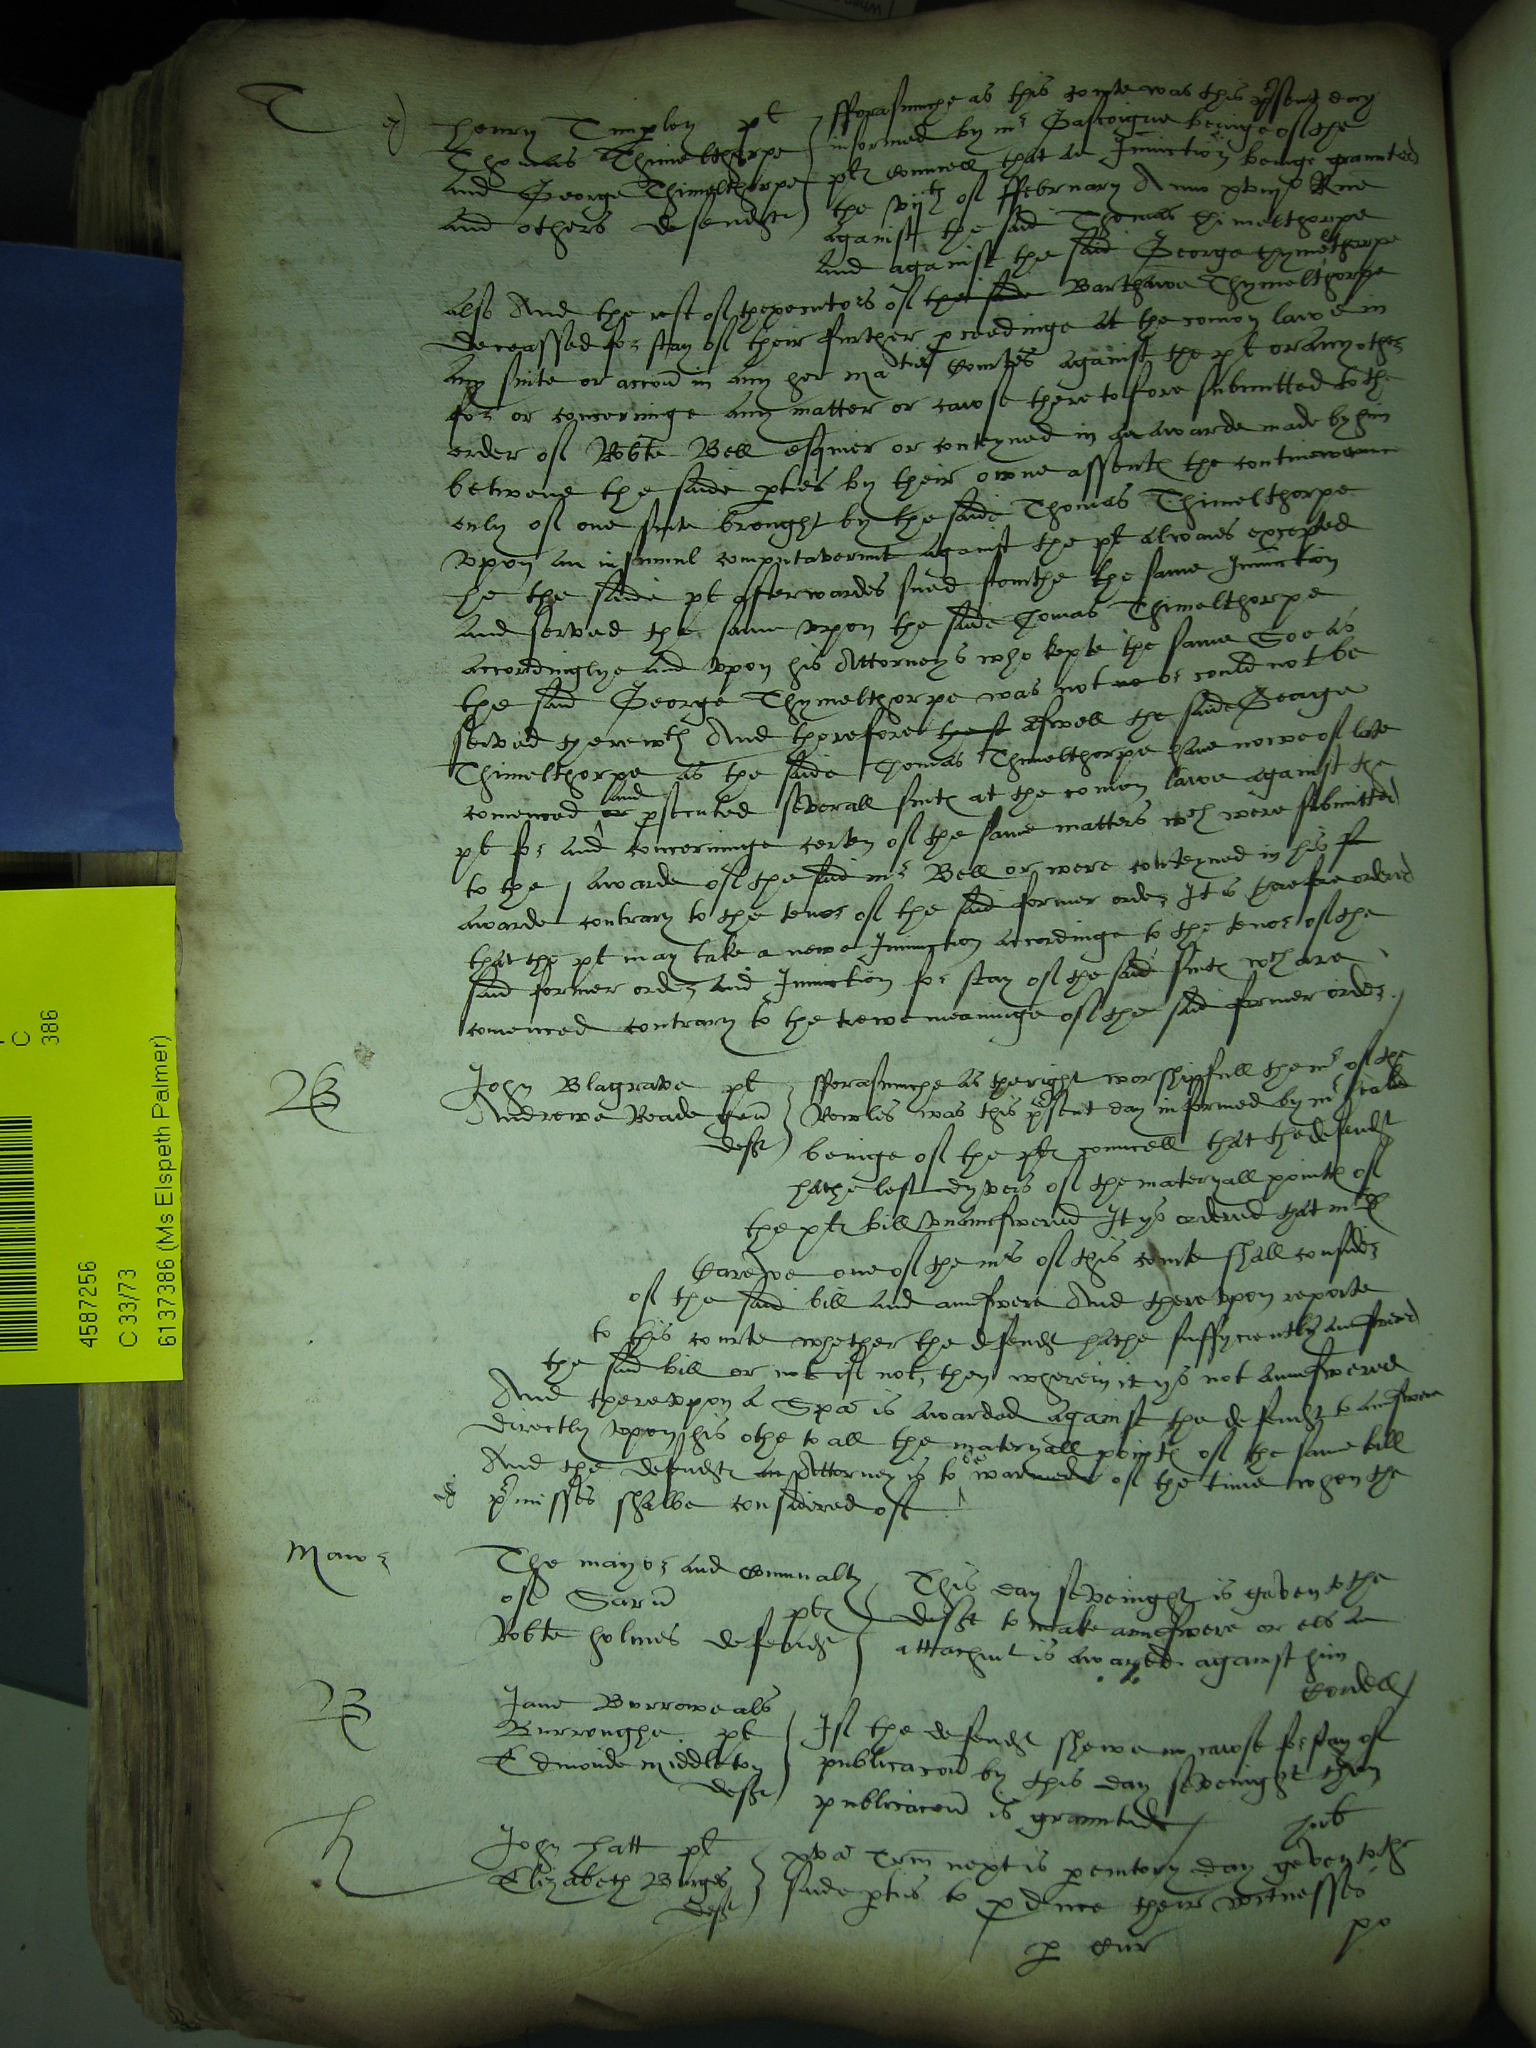 T
Henry Timpley plt
Thomas Thimelthorpe
and George Thimelthorpe
and others defendtes
fforasmuche as this courte was this pñsent day
informed by mr Gascoigne beinge of the
pltes councell that an Iniunction beinge graunted
the vijth of ffebruary Anno xviijo Rne
against the said Thomas Thimelthorpe
and against the said George thymelthorpe
also And the rest of thexecutors of the saide Barthawe Thymelthorpe
deceassed for stay of their further pceedinge at the comon lawe in
any suite or accon in any her maties Courtes against the plt or any other
for or concerninge any matter or cawse theretofore submitted to the
order of Robte Bell esquier or conteyned in an awarde made by him
betwene the saide pties by their owne assentes the contineweaunce
only of one suite brought by the saide Thomas Thimelthorpe
vpon an insimul computaverunt against the plt alwaies excepted
he the saide plt afterwardes sued fourthe the same Iniunction
and served the same vpon the saide Thomas Thimelthorpe
accordinglye and vpon his Attorneys who kepte the same Soe as
the said George Thymelthorpe was not or could not be
served therewth And therefore the st aswell the saide George
Thimelthorpe as the saide Thomas Thimelthorpe have nowe of late
comenced or and psecuted severall suites at the comon lawe against the
plt for and concerninge certen of the same matters wch were submitted
to the awarde of the said mr Bell or were conteyned in his st
awarde contrary to the tenor of the said former order It is therefore ordered
that the plt may take a newe Iniunction accordinge to the tenor of the
said former order and Iniunction for stay of the said suites wch are
comenced contrary to the trewe meaninge of the said former order
B
John Blagrave plt
Andrewe Reade gen
deft
fforasmuche as the right worshipfull the mr of the
Rowles was this pñsent day informed by mr
beinge of the pltes councell that the defendt
hathe left dyvers of the materyall pointes of
the pltes bill vnanswered It ys ordered that mr
Carewe one of the mrs of this courte shall consider
of the said bill and answere And therevpon reporte
to this courte whether the defendt hathe suffyciently answered
the said bill or not if not, then wherein it ys not answered
And therevpon a Spã is awarded against the defendt to answere
directly vpon his othe to all the materyall pointes of the same bill
And the defendtes Attorney is to be warned of the time when the
pmisses shalbe considered of
Mawr
The mayor and Comunalty
of Sarũ pltes
Robte holmes defendt
This day sevenight is geven to the
deft to make answere or els an
attachmt is awarded against him
Cordell
B
Jane Burrowe als
Burroughe plt
Edmonde Middleton
deft
If the defendt shewe no cawse for stay of
publicacon by this day sevenight then
publicacon is graunted
h
John hatt plt
Elizabeth Burges
deft
xva Trin next is pemtory day geven to the
saide pties to pduce their wittnesses
p Cur